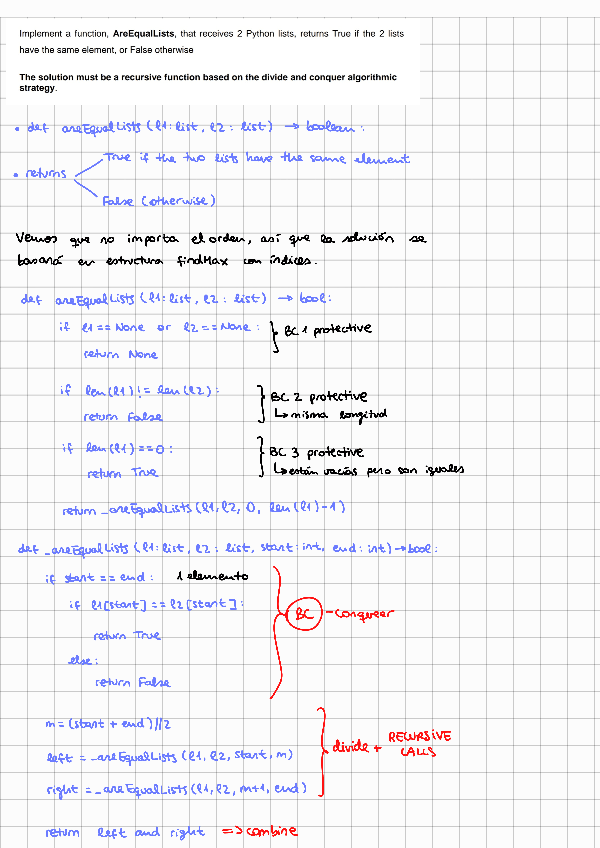 Implement a function, AreEqualLists, that receives 2 Python lists, returns True if the 2 lists
have the same element, or False otherwise
The solution must be a recursive function based on the divide and conquer algorithmic
strategy.
• def areEqualLists (l1: list, l2: list) → boolean:
• returns
True if the two lists have the same element
False (otherwise)
Vemos que no importa el orden, así que la solución se
basará en estructura findMax con índices.
def areEqualLists (l1: list, l2: list) → bool:
if l1 == None or l2 == None : BC 1 protective
return None
if len(l1) != len(l2): BC 2 protective
return False ↳ misma longitud
if len(l1) == 0: BC 3 protective
return True ↳ están vacías pero son iguales
return _areEqualLists (l1, l2, 0, len(l1)-1)
def _areEqualLists (l1: list, l2: list, start: int, end: int) → bool:
if start == end: 1 elemento
if l1[start] == l2[start]: BC - conqueer
return True
else:
return False
m = (start + end)//2
left = _areEqualLists (l1, l2, start, m) divide + RECURSIVE CALLS
right = _areEqualLists (l1, l2, m+1, end)
return left and right => combine